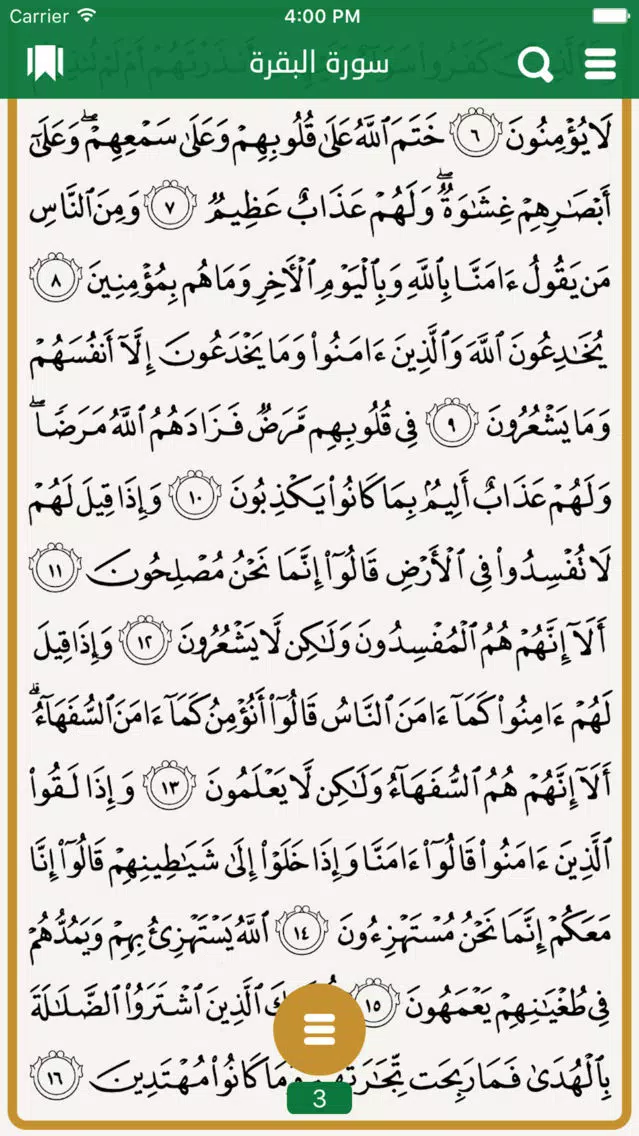 Carrier 4:00 PM
سورة البقرة
لَا يُؤْمِنُونَ ٦ خَتَمَ ٱللَّهُ عَلَىٰ قُلُوبِهِمْ وَعَلَىٰ سَمْعِهِمْ ۖ وَعَلَىٰٓ
أَبْصَـٰرِهِمْ غِشَـٰوَةٌ ۖ وَلَهُمْ عَذَابٌ عَظِيمٌ ٧ وَمِنَ ٱلنَّاسِ
مَن يَقُولُ ءَامَنَّا بِٱللَّهِ وَبِٱلْيَوْمِ ٱلْـَٔاخِرِ وَمَا هُم بِمُؤْمِنِينَ ٨
يُخَـٰدِعُونَ ٱللَّهَ وَٱلَّذِينَ ءَامَنُوا۟ وَمَا يَخْدَعُونَ إِلَّآ أَنفُسَهُمْ
وَمَا يَشْعُرُونَ ٩ فِى قُلُوبِهِم مَّرَضٌ فَزَادَهُمُ ٱللَّهُ مَرَضًا ۖ
وَلَهُمْ عَذَابٌ أَلِيمٌۢ بِمَا كَانُوا۟ يَكْذِبُونَ ١٠ وَإِذَا قِيلَ لَهُمْ
لَا تُفْسِدُوا۟ فِى ٱلْأَرْضِ قَالُوٓا۟ إِنَّمَا نَحْنُ مُصْلِحُونَ ١١
أَلَآ إِنَّهُمْ هُمُ ٱلْمُفْسِدُونَ وَلَـٰكِن لَّا يَشْعُرُونَ ١٢ وَإِذَا قِيلَ
لَهُمْ ءَامِنُوا۟ كَمَآ ءَامَنَ ٱلنَّاسُ قَالُوٓا۟ أَنُؤْمِنُ كَمَآ ءَامَنَ ٱلسُّفَهَآءُ ۗ
أَلَآ إِنَّهُمْ هُمُ ٱلسُّفَهَآءُ وَلَـٰكِن لَّا يَعْلَمُونَ ١٣ وَإِذَا لَقُوا۟
ٱلَّذِينَ ءَامَنُوا۟ قَالُوٓا۟ ءَامَنَّا وَإِذَا خَلَوْا۟ إِلَىٰ شَيَـٰطِينِهِمْ قَالُوٓا۟ إِنَّا
مَعَكُمْ إِنَّمَا نَحْنُ مُسْتَهْزِءُونَ ١٤ ٱللَّهُ يَسْتَهْزِئُ بِهِمْ وَيَمُدُّهُمْ
فِى طُغْيَـٰنِهِمْ يَعْمَهُونَ ١٥ ٱلَّذِينَ ٱشْتَرَوُا۟ ٱلضَّلَـٰلَةَ
بِٱلْهُدَىٰ فَمَا رَبِحَت تِّجَـٰرَتُهُمْ وَمَا كَانُوا۟ مُهْتَدِينَ ١٦
3